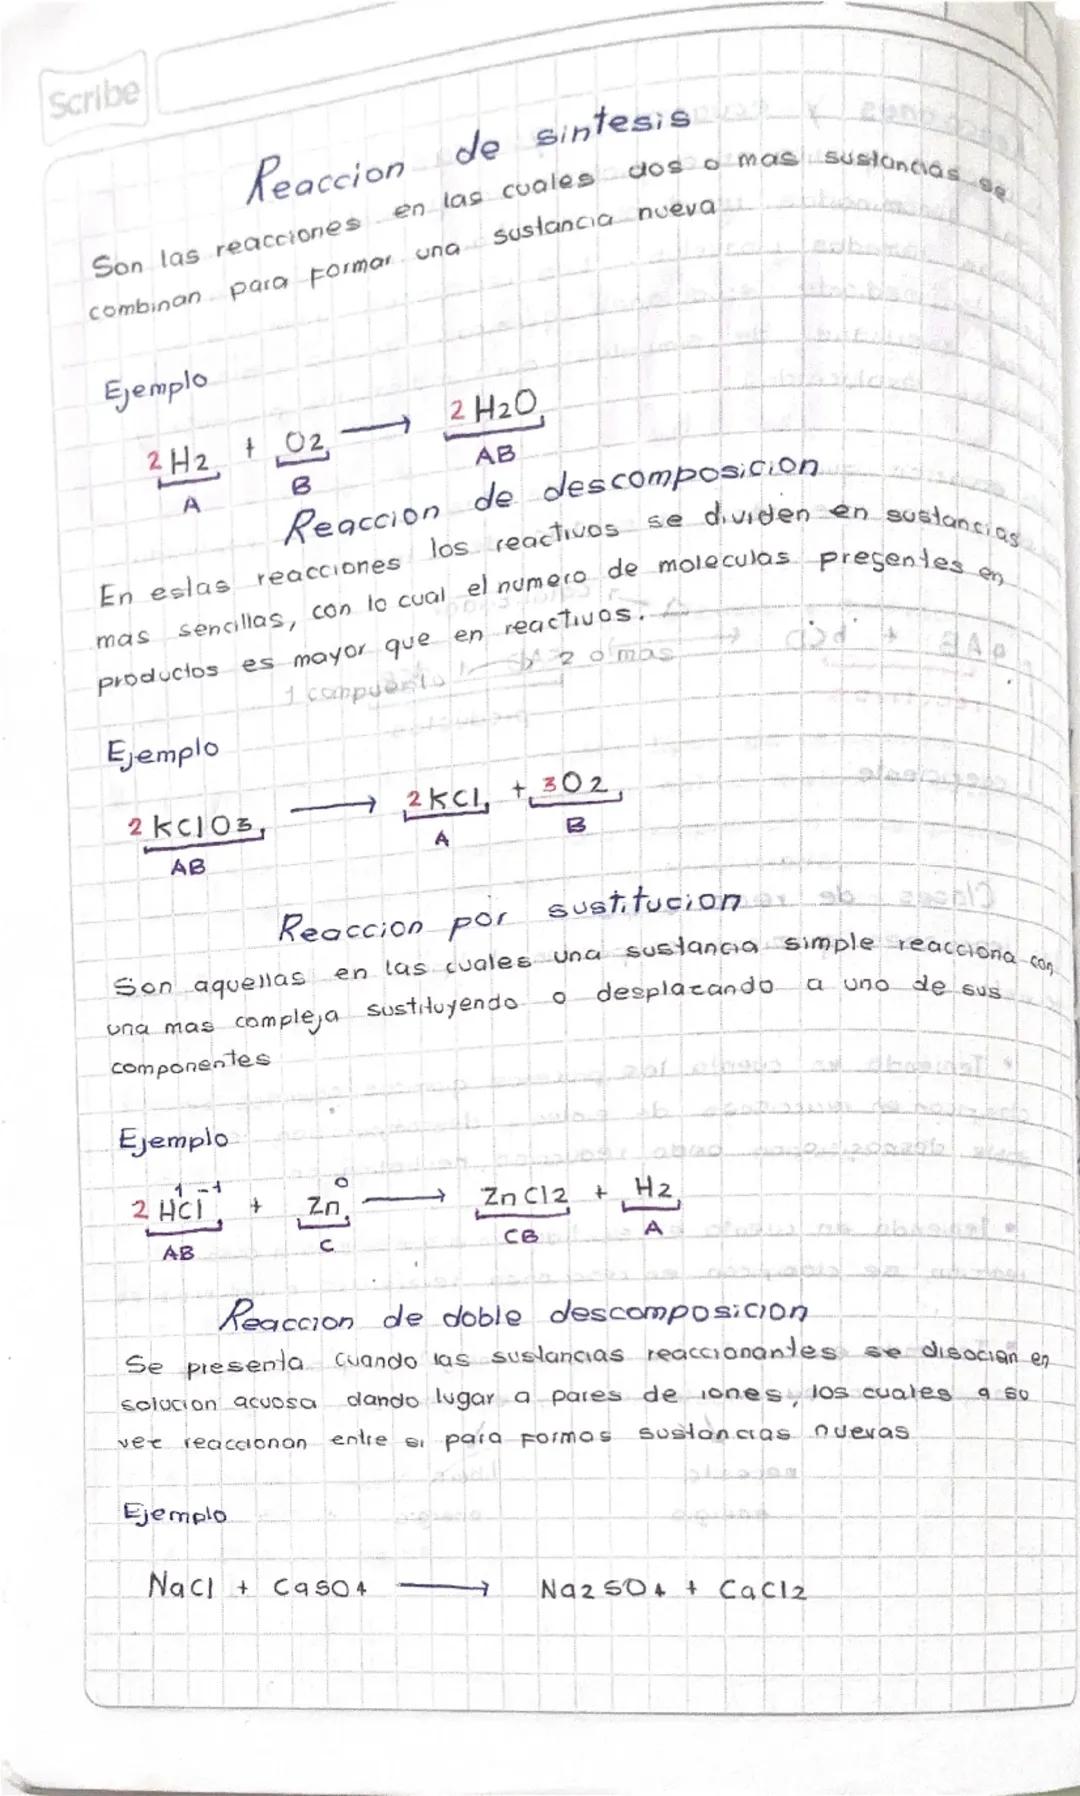 Scribe
Reaccion de sintesis
Son las reacciones en las cuales dos o mas sustancias se
combinan para formar una sustancia nueva
Ejemplo
2 H2 + O2 → 2 H2O
A B AB
Reaccion de descomposicion
En estas reacciones los reactivos se dividen en sustancias
mas sencillas, con lo cual el numero de moleculas presentes en
productos es mayor que en reactivos.
1 compuesto → 2 o mas
Ejemplo
2 KClO3 → 2 KCl + 3O2
AB A B
Reaccion por sustitucion
Son aquellas en las cuales una sustancia simple reacciona con
una mas compleja sustituyendo o desplazando a uno de sus
componentes
Ejemplo
1 -1 0
2 HCl + Zn → ZnCl2 + H2
AB C CB A
Reaccion de doble descomposicion
Se presenta cuando las sustancias reaccionantes se disocian en
solucion acuosa dando lugar a pares de iones, los cuales a su
vez reaccionan entre si para formas sustancias nuevas
Ejemplo
NaCl + CaSO4 → Na2SO4 + CaCl2